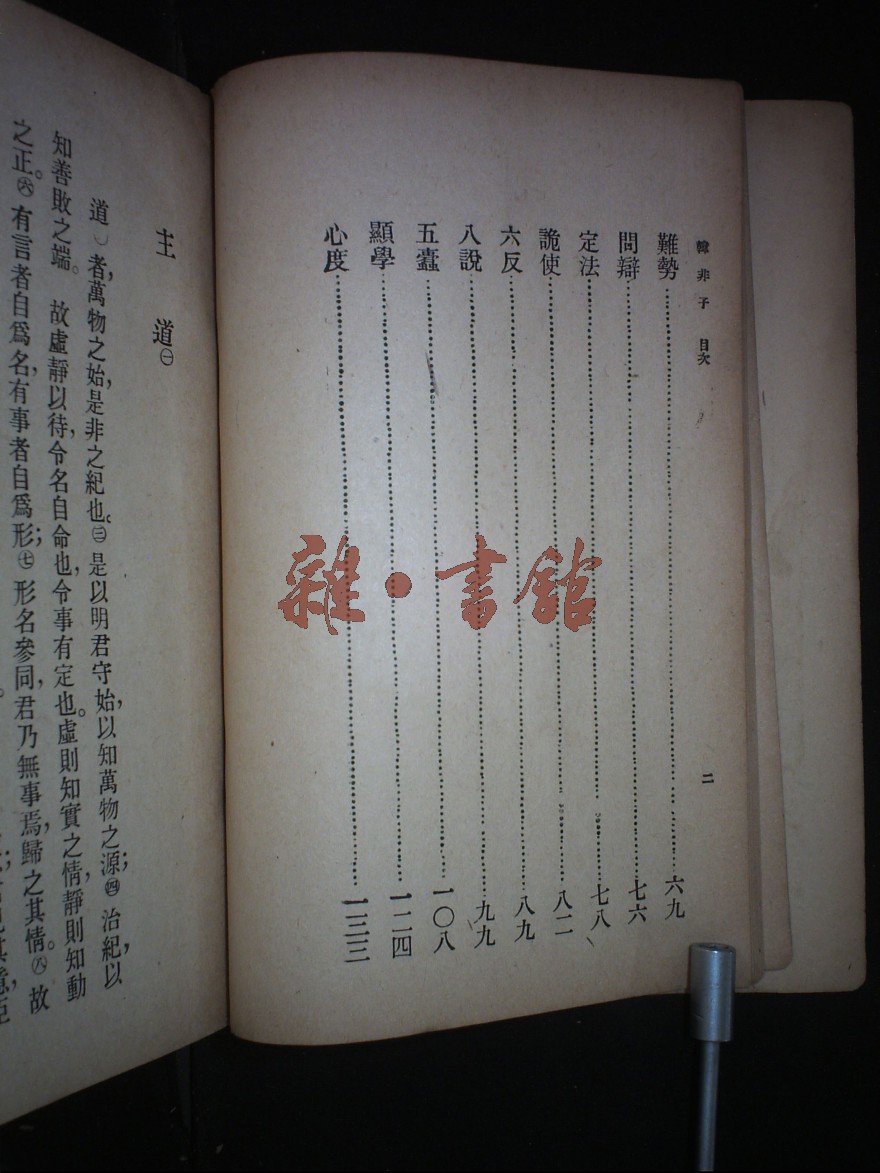 韓非子 目次
二
難勢 六九
問辯 七六
定法 七八
詭使 八二
六反 八九
八說 九九
五蠹 一〇八
顯學 一二四
心度 一三三
雜·書館
主道㊀
道㊁者,萬物之始,是非之紀也。㊂是以明君守始,以知萬物之源;㊃治紀,以
知善敗之端。故虛靜以待,令名自命也,令事有定也。虛則知實之情,靜則知動
之正。㊅有言者自爲名,有事者自爲形;㊆形名參同,君乃無事焉,歸之其情。㊇故